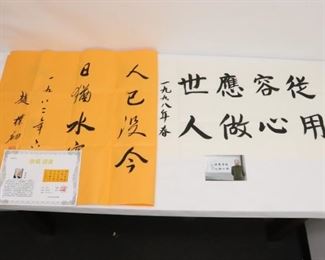 人已没今
日猶水
一九八二年六
趙樸初
從容應世
用心做人
一九八八年春